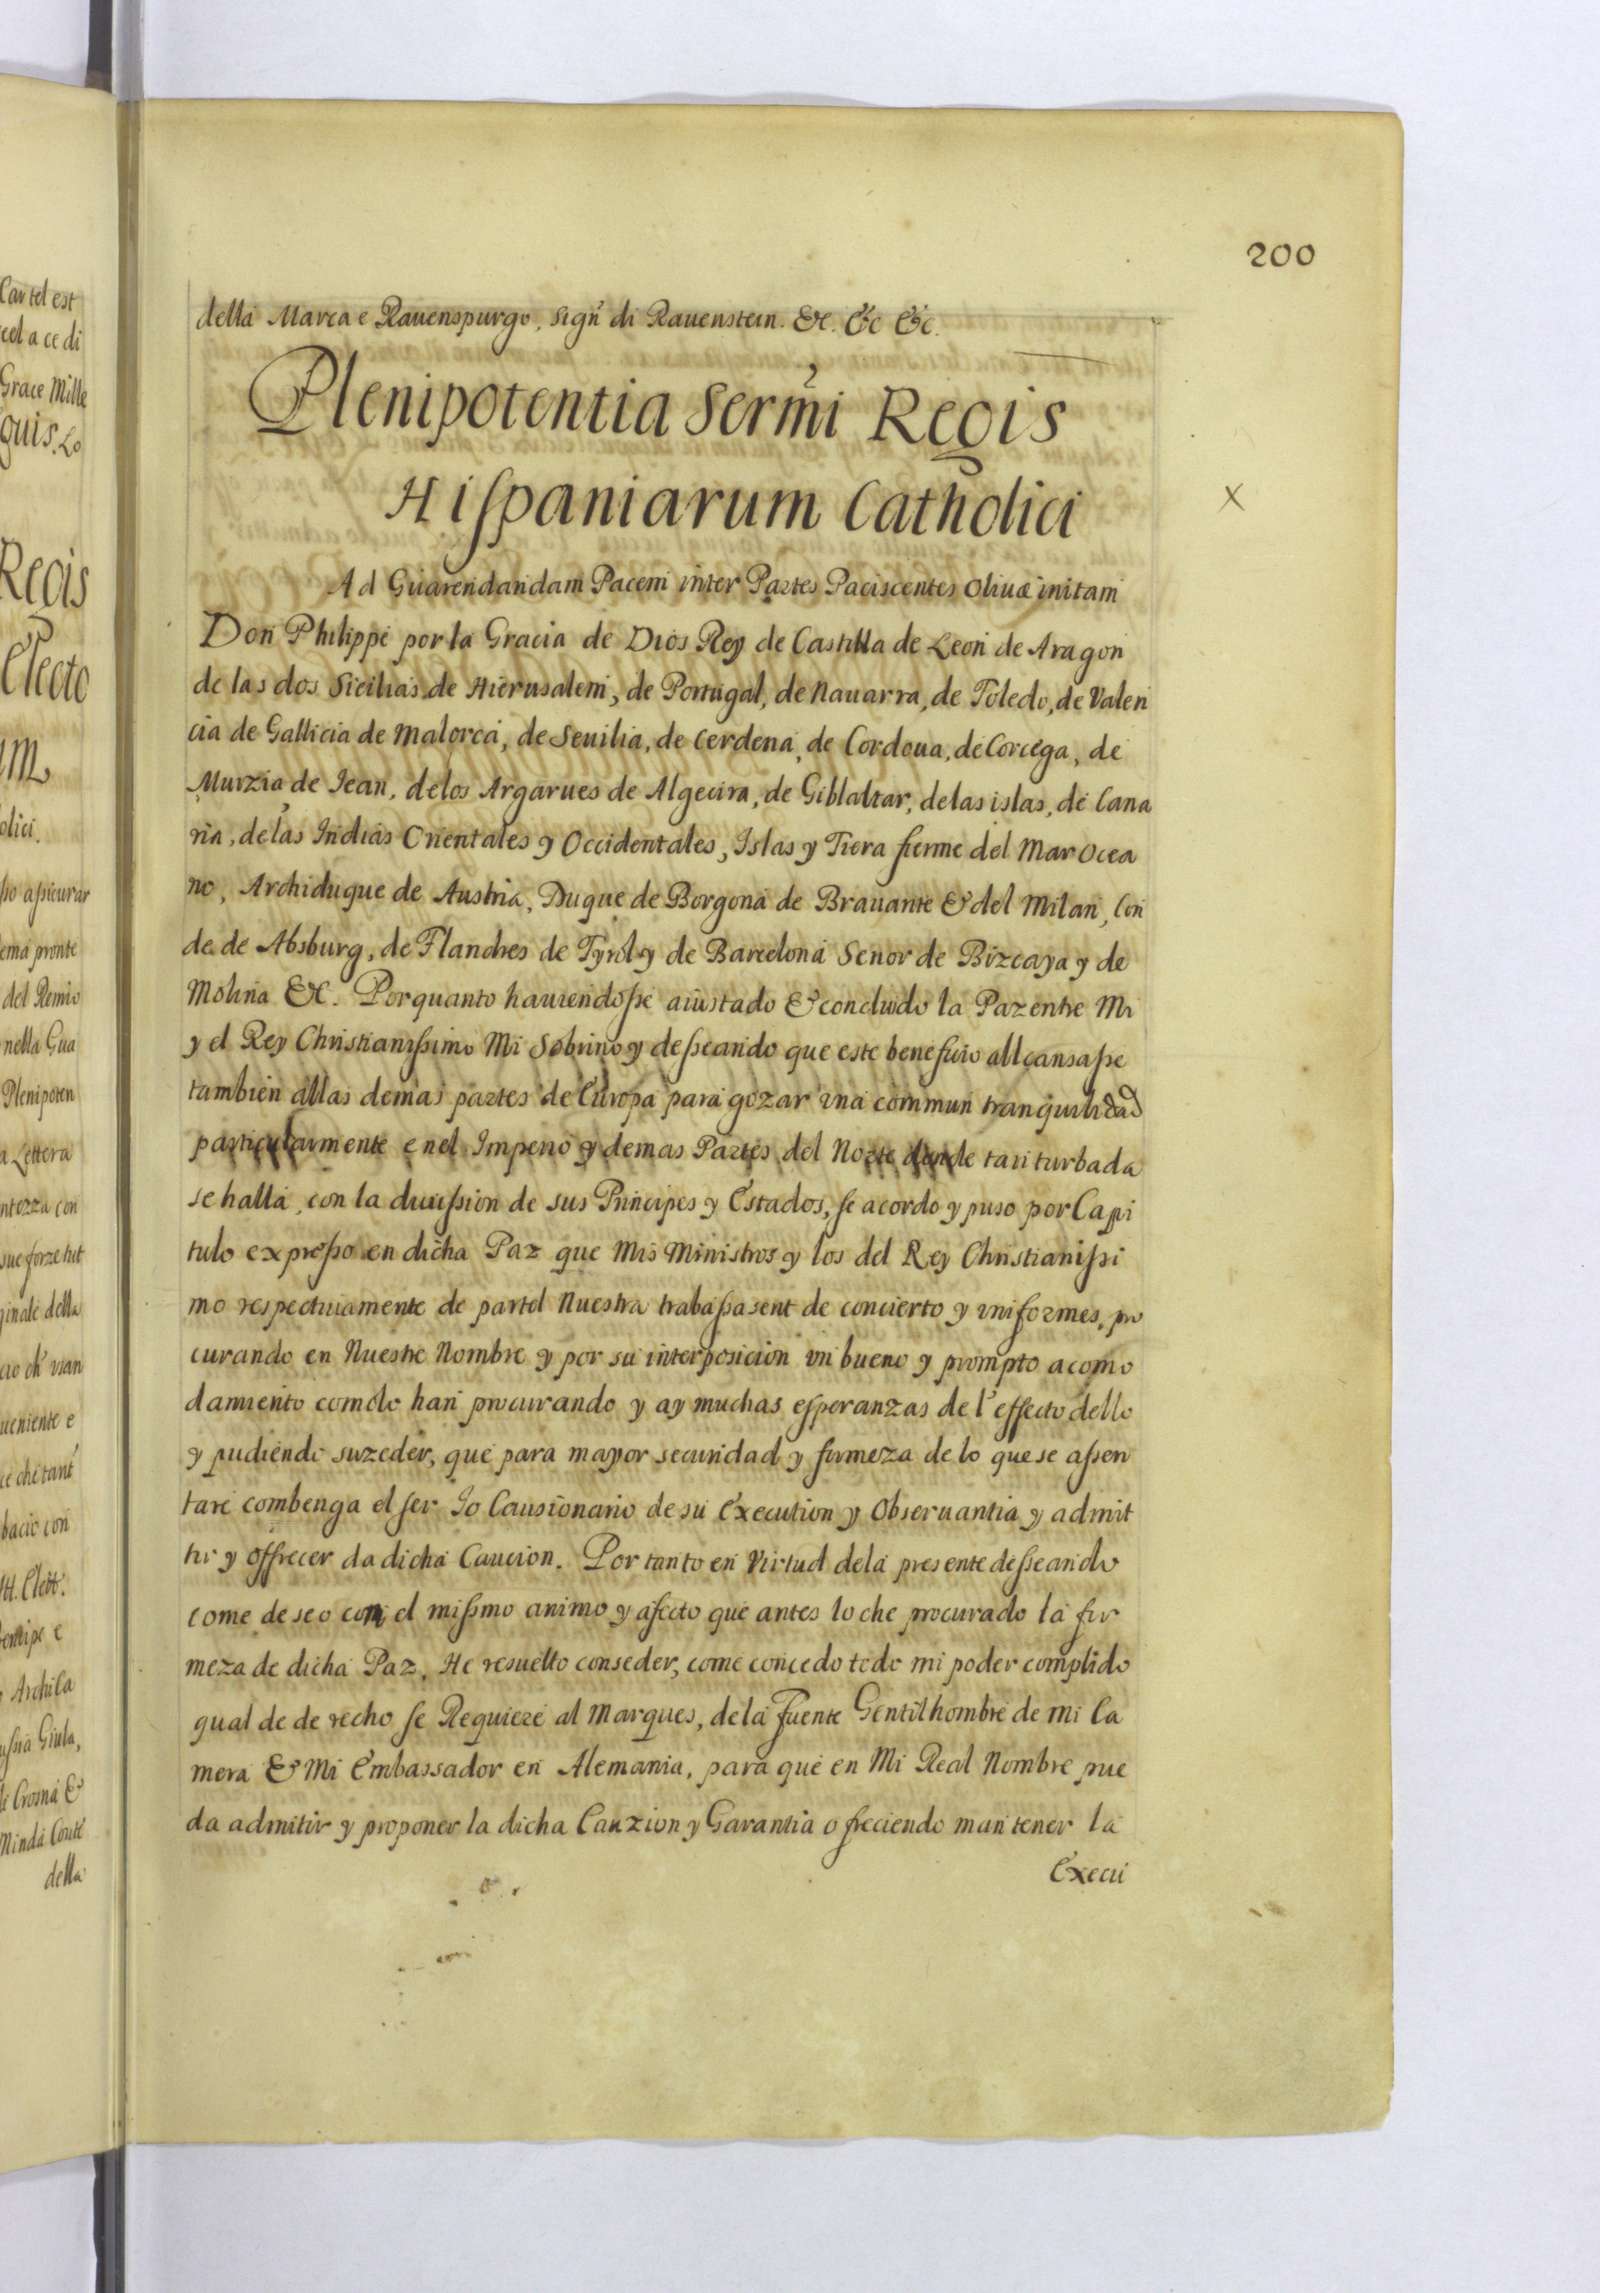 200
della Marca e Rauenspurgo, Sigñ di Rauenstein. &c. &c &c.
Plenipotentia Serm̃i Regis
Hiſpaniarum Catholici
Ad Guarendandam Pacem inter Partes Paciscentes Oliuæ initam
Don Philippe por la Gracia de Dios Rey de Castilla de Leon de Aragon
de las dos Sicilias de Hierusalem, de Portugal, de Nauarra, de Toledo, de Valen
cia de Gallicia de Malorca, de Seuilia, de Cerdena, de Cordoua, de Corcega, de
Murzia de Iean, delos Argarues de Algecira, de Giblaltar, delas islas, de Cana
ria, de las Indias Orientales y Occidentales, Islas y Tiera fierme del Mar Ocea
no, Archiduque de Austria, Duque de Borgona de Brauante & del Milan, Con
de de Absburg, de Flandres de Tyrol y de Barcelona Senor de Bizcaya y de
Molina &c. Porquanto hauiendoſse aiustado & concluido la Paz entre Mi
y el Rey Christianiſsimo Mi Sobrino y deſseando que este beneficio allcansaſse
tambien allas demas partes de Europa para gozar vna commun tranquilidad
particularmente enel Imperio y demas Partes del Norte donde tan turbada
se halla, con la diuiſsion de sus Principes y Estados, ſe acordo y puso por Capi
tulo expreſso en dicha Paz que Mis Ministros y los del Rey Christianiſsi
mo respectiuamente de partel Nuestra trabaſsasent de concierto y vniformes, pro
curando en Nuestre Nombre y por su interposicion vn bueno y prompto acomo
damiento comolo han procurando y ay muchas eſperanzas de l'effecto dello
y pudiendo suzeder, que para mayor securidad y firmeza de lo que se aſsen
tare combenga el ſer Io Causionario de su Execution y Obseruantia y admit
tir y offrecer da dicha Caucion. Por tanto en Virtud dela presente deſseando
come deseo con el miſsmo animo y afecto que antes lo che procurado la fir
meza de dicha Paz, He resuelto conseder, come concedo todo mi poder complido
qual de derecho ſe Requiere al Marques, dela Fuente Gentilhombre de mi Ca
mera & Mi Embassador en Alemania, para que en Mi Real Nombre pue
da admitir y proponer la dicha Cauzion y Garantia ofreciendo mantener la
Execu